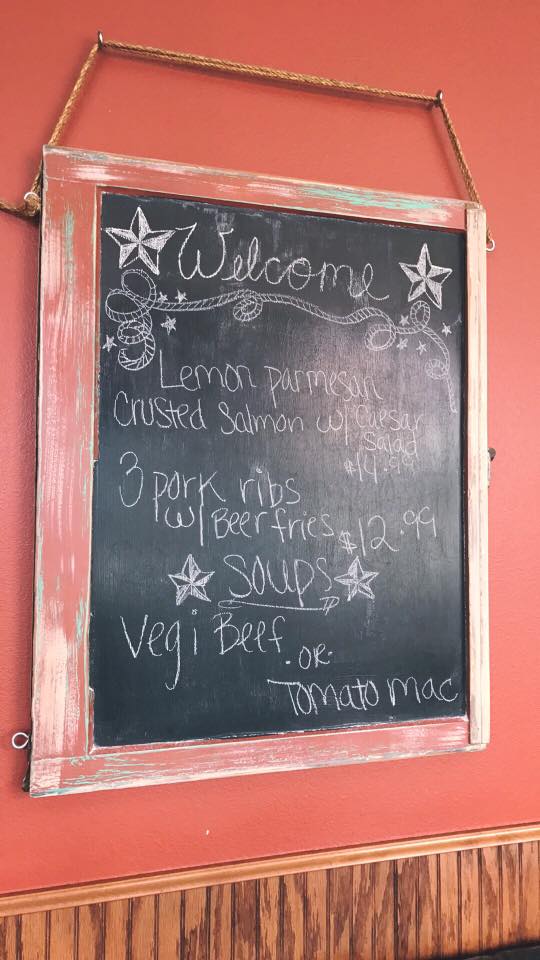 Welcome
Lemon parmesan
Crusted Salmon w/ Caesar
Salad
$14.99
3 pork ribs
w/ Beer fries $12.99
Soups
Vegi Beef
. or .
Tomato mac